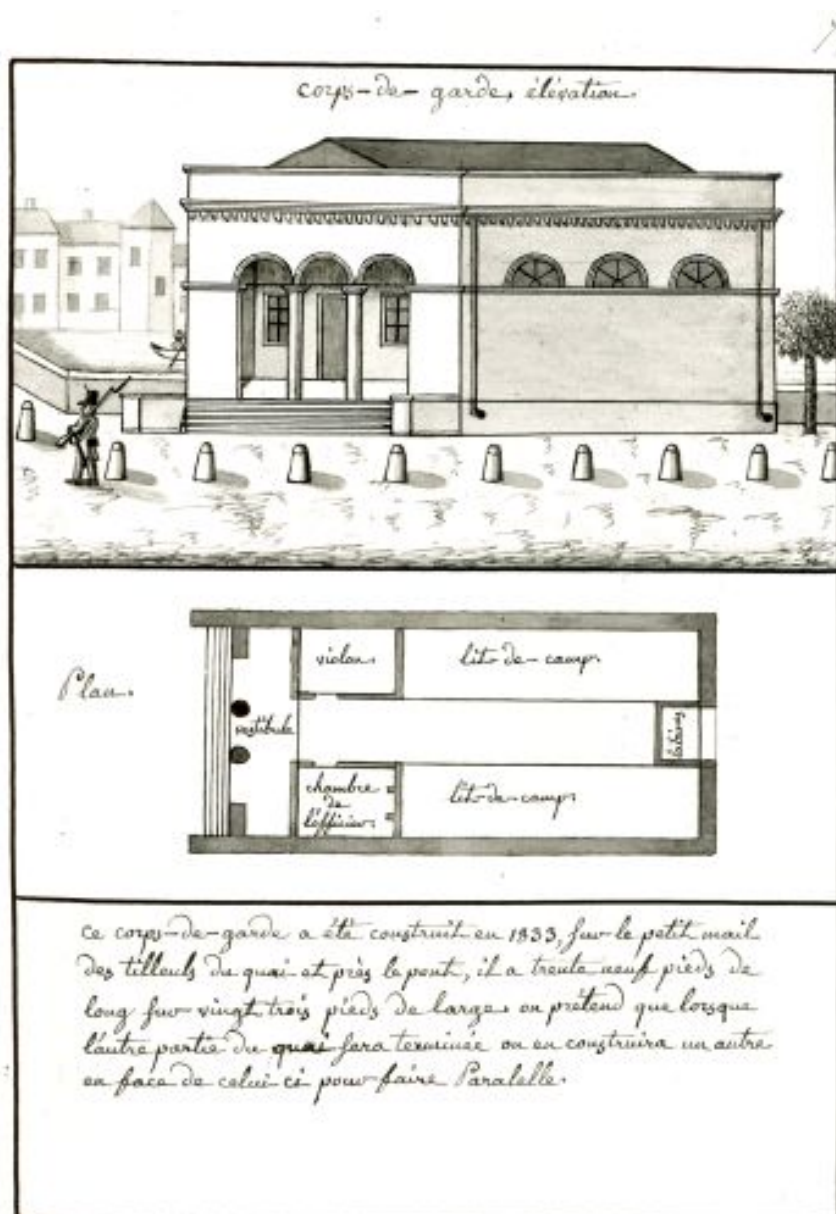 corps-de-garde, élévation.
Plan.
violon.
lit-de-camp.
vestibule
latrines
chambre
de
l'officier.
lit-de-camp.
ce corps-de-garde a été construit en 1833, sur le petit mail
des tilleuls du quai et près le pont, il a trente neuf pieds de
long sur vingt trois pieds de large. on prétend que lorsque
l'autre partie du quai sera terminée on en construira un autre
en face de celui ci pour faire Paralelle.